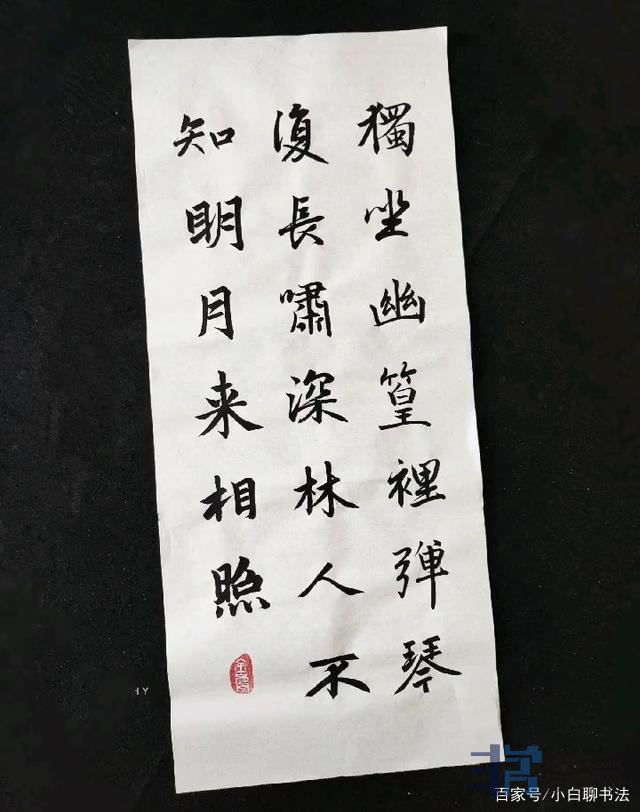 獨坐幽篁裡彈琴
復長嘯深林人不
知明月来相照
百家号/小白聊书法